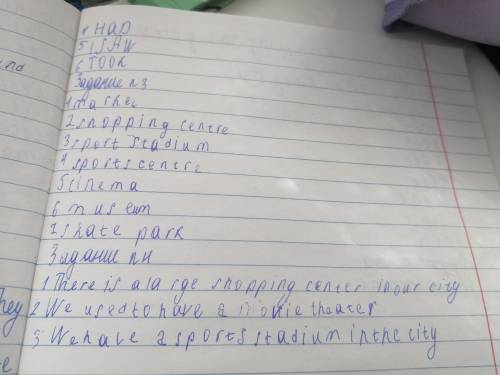 4 HAD
5 I SAW
6 TOOK
Задание n3
1 market
2 shopping centre
3 sport stadium
4 sports centre
5 cinema
6 museum
7 skate park
Задание n4
1 There is a large shopping center in our city
They 2 We used to have a movie theater
3 We have a sports stadium in the city